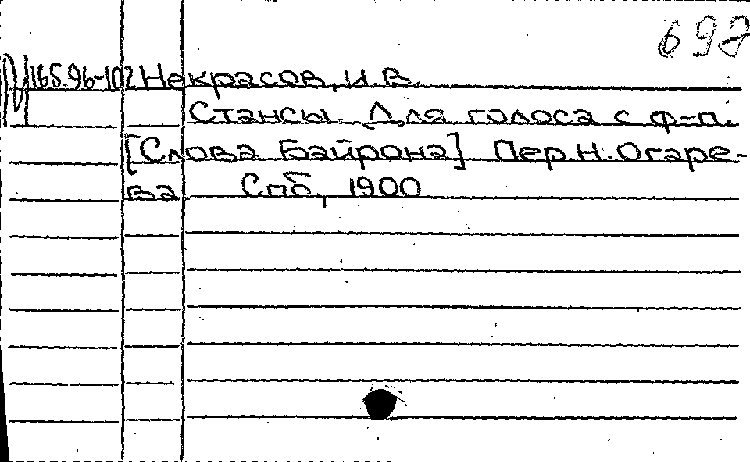 698
165.96-102 Некрасов, И.В.
Стансы. Для голоса с ф-п.
[Слова Байрона] Пер. Н. Огаре-
ва Спб, 1900